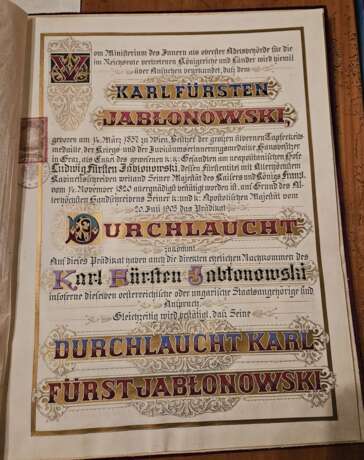 Vom Ministerium des Innern als oberster Adelsbehörde für die
im Reichsrate vertretenen Königreiche und Länder wird hiemit
über Ansuchen beurkundet, daß dem
KARL FÜRSTEN
JABŁONOWSKI,
geboren am 14. März 1857 in Wien, Besitzer der großen silbernen Tapferkeits-
medaille, der Kriegs- und der Jubiläumserinnerungsmedaille, Hausbesitzer
in Graz, als Enkel des gewesenen k. k. Gesandten am neapolitanischen Hofe
Ludwig Fürsten Jabłonowski, dessen Fürstentitel mit Allerhöchstem
Kabinetschreiben weiland Seiner Majestät des Kaisers und Königs Franz I.
vom 14. November 1820 allergnädigst bestätigt worden ist, auf Grund des Al-
lerhöchsten Handschreibens Seiner k. und k. Apostolischen Majestät vom
20. Juni 1905 das Prädikat
DURCHLAUCHT
zukommt.
Auf dieses Prädikat haben auch die direkten ehelichen Nachkommen des
Karl Fürsten Jabłonowski
insoferne dieselben oesterreichische oder ungarische Staatsangehörige sind
Anspruch.
Gleichzeitig wird bestätigt, daß Seine
DURCHLAUCHT KARL
FÜRST JABŁONOWSKI